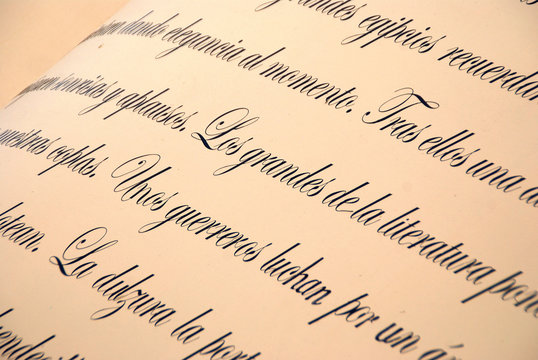 grandes egipcios recuerdan
dando elegancia al momento. Tras ellos una
sonrisas y aplausos. Los grandes de la literatura pone
nuestras coplas. Unos guerreros luchan por un á
La dulzura la port